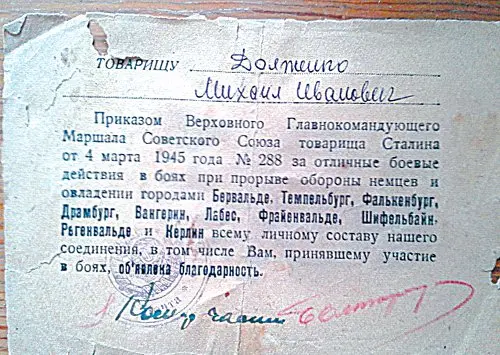 ТОВАРИЩУ Долженко
Михаил Иванович
Приказом Верховного Главнокомандующего
Маршала Советского Союза товарища Сталина
от 4 марта 1945 года № 288 за отличные боевые
действия в боях при прорыве обороны немцев и
овладении городами Бервальде, Темпельбург, Фалькенбург,
Драмбург, Вангерин, Лабес, Фрайенвальде, Шифельбайн,
Регенвальде и Керлин всему личному составу нашего
соединения, в том числе Вам, принявшему участие
в боях, об'явлена благодарность.
части